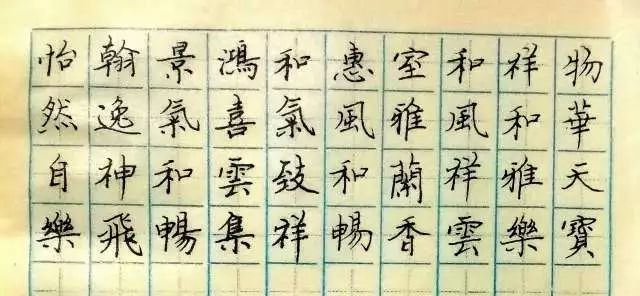 物華天寶
祥和雅樂
和風祥雲
室雅蘭香
惠風和暢
和氣致祥
鴻喜雲集
景氣和暢
翰逸神飛
怡然自樂